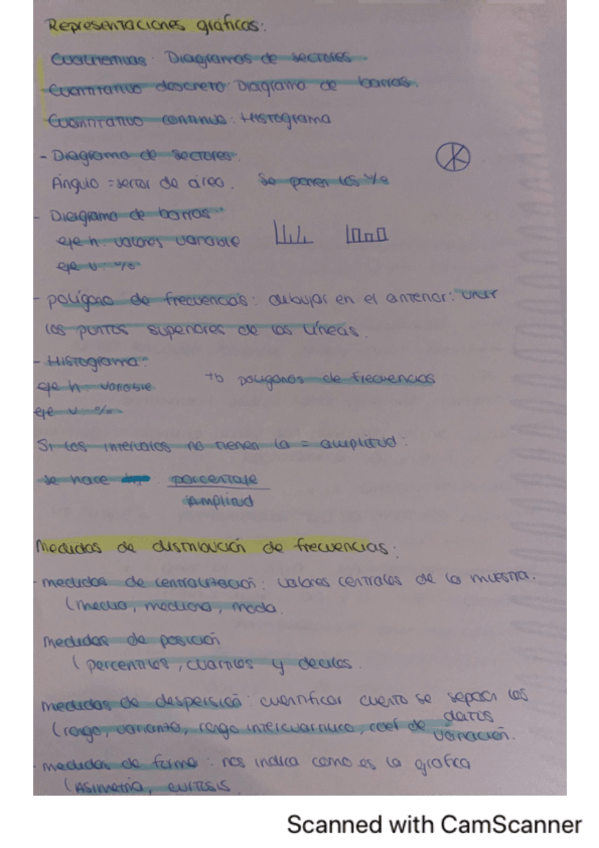 Representaciones gráficas:
Cualitativas: Diagramas de sectores.
Cuantitativo discreto: Diagrama de barras.
Cuantitativo continuo: Histograma
- Diagrama de sectores.
Ángulo = sector de área. Se ponen los %
- Diagrama de barras:
eje h: valores variable
eje v: %
- polígono de frecuencias: dibujar en el anterior: unir
los puntos superiores de las líneas.
- Histograma:
eje h: variable tb polígonos de frecuencias
eje v: %
Si los intervalos no tienen la = amplitud:
se hace porcentaje
amplitud
Medidas de distribución de frecuencias:
- medidas de centralización: valores centrales de la muestra.
(media, mediana, moda.
medidas de posición
(percentiles, cuartiles y deciles.
medidas de dispersión: cuantificar cuanto se separan los
datos
(rango, varianza, rango intercuartilico, coef de variación.
- medidas de forma: nos indica como es la grafica
(Asimetría, curtosis.
Scanned with CamScanner